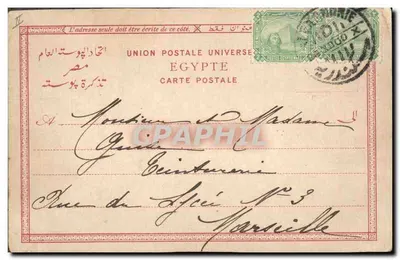 L'adresse seule doit être écrite de ce côté.
اتحاد البوستة العام
مصر
تذكرة بوستة
UNION POSTALE UNIVERSELLE
EGYPTE
CARTE POSTALE
A
Monsieur et Madame
Teinturerie
Rue du Lycée N° 3
Marseille
CPAPHIL